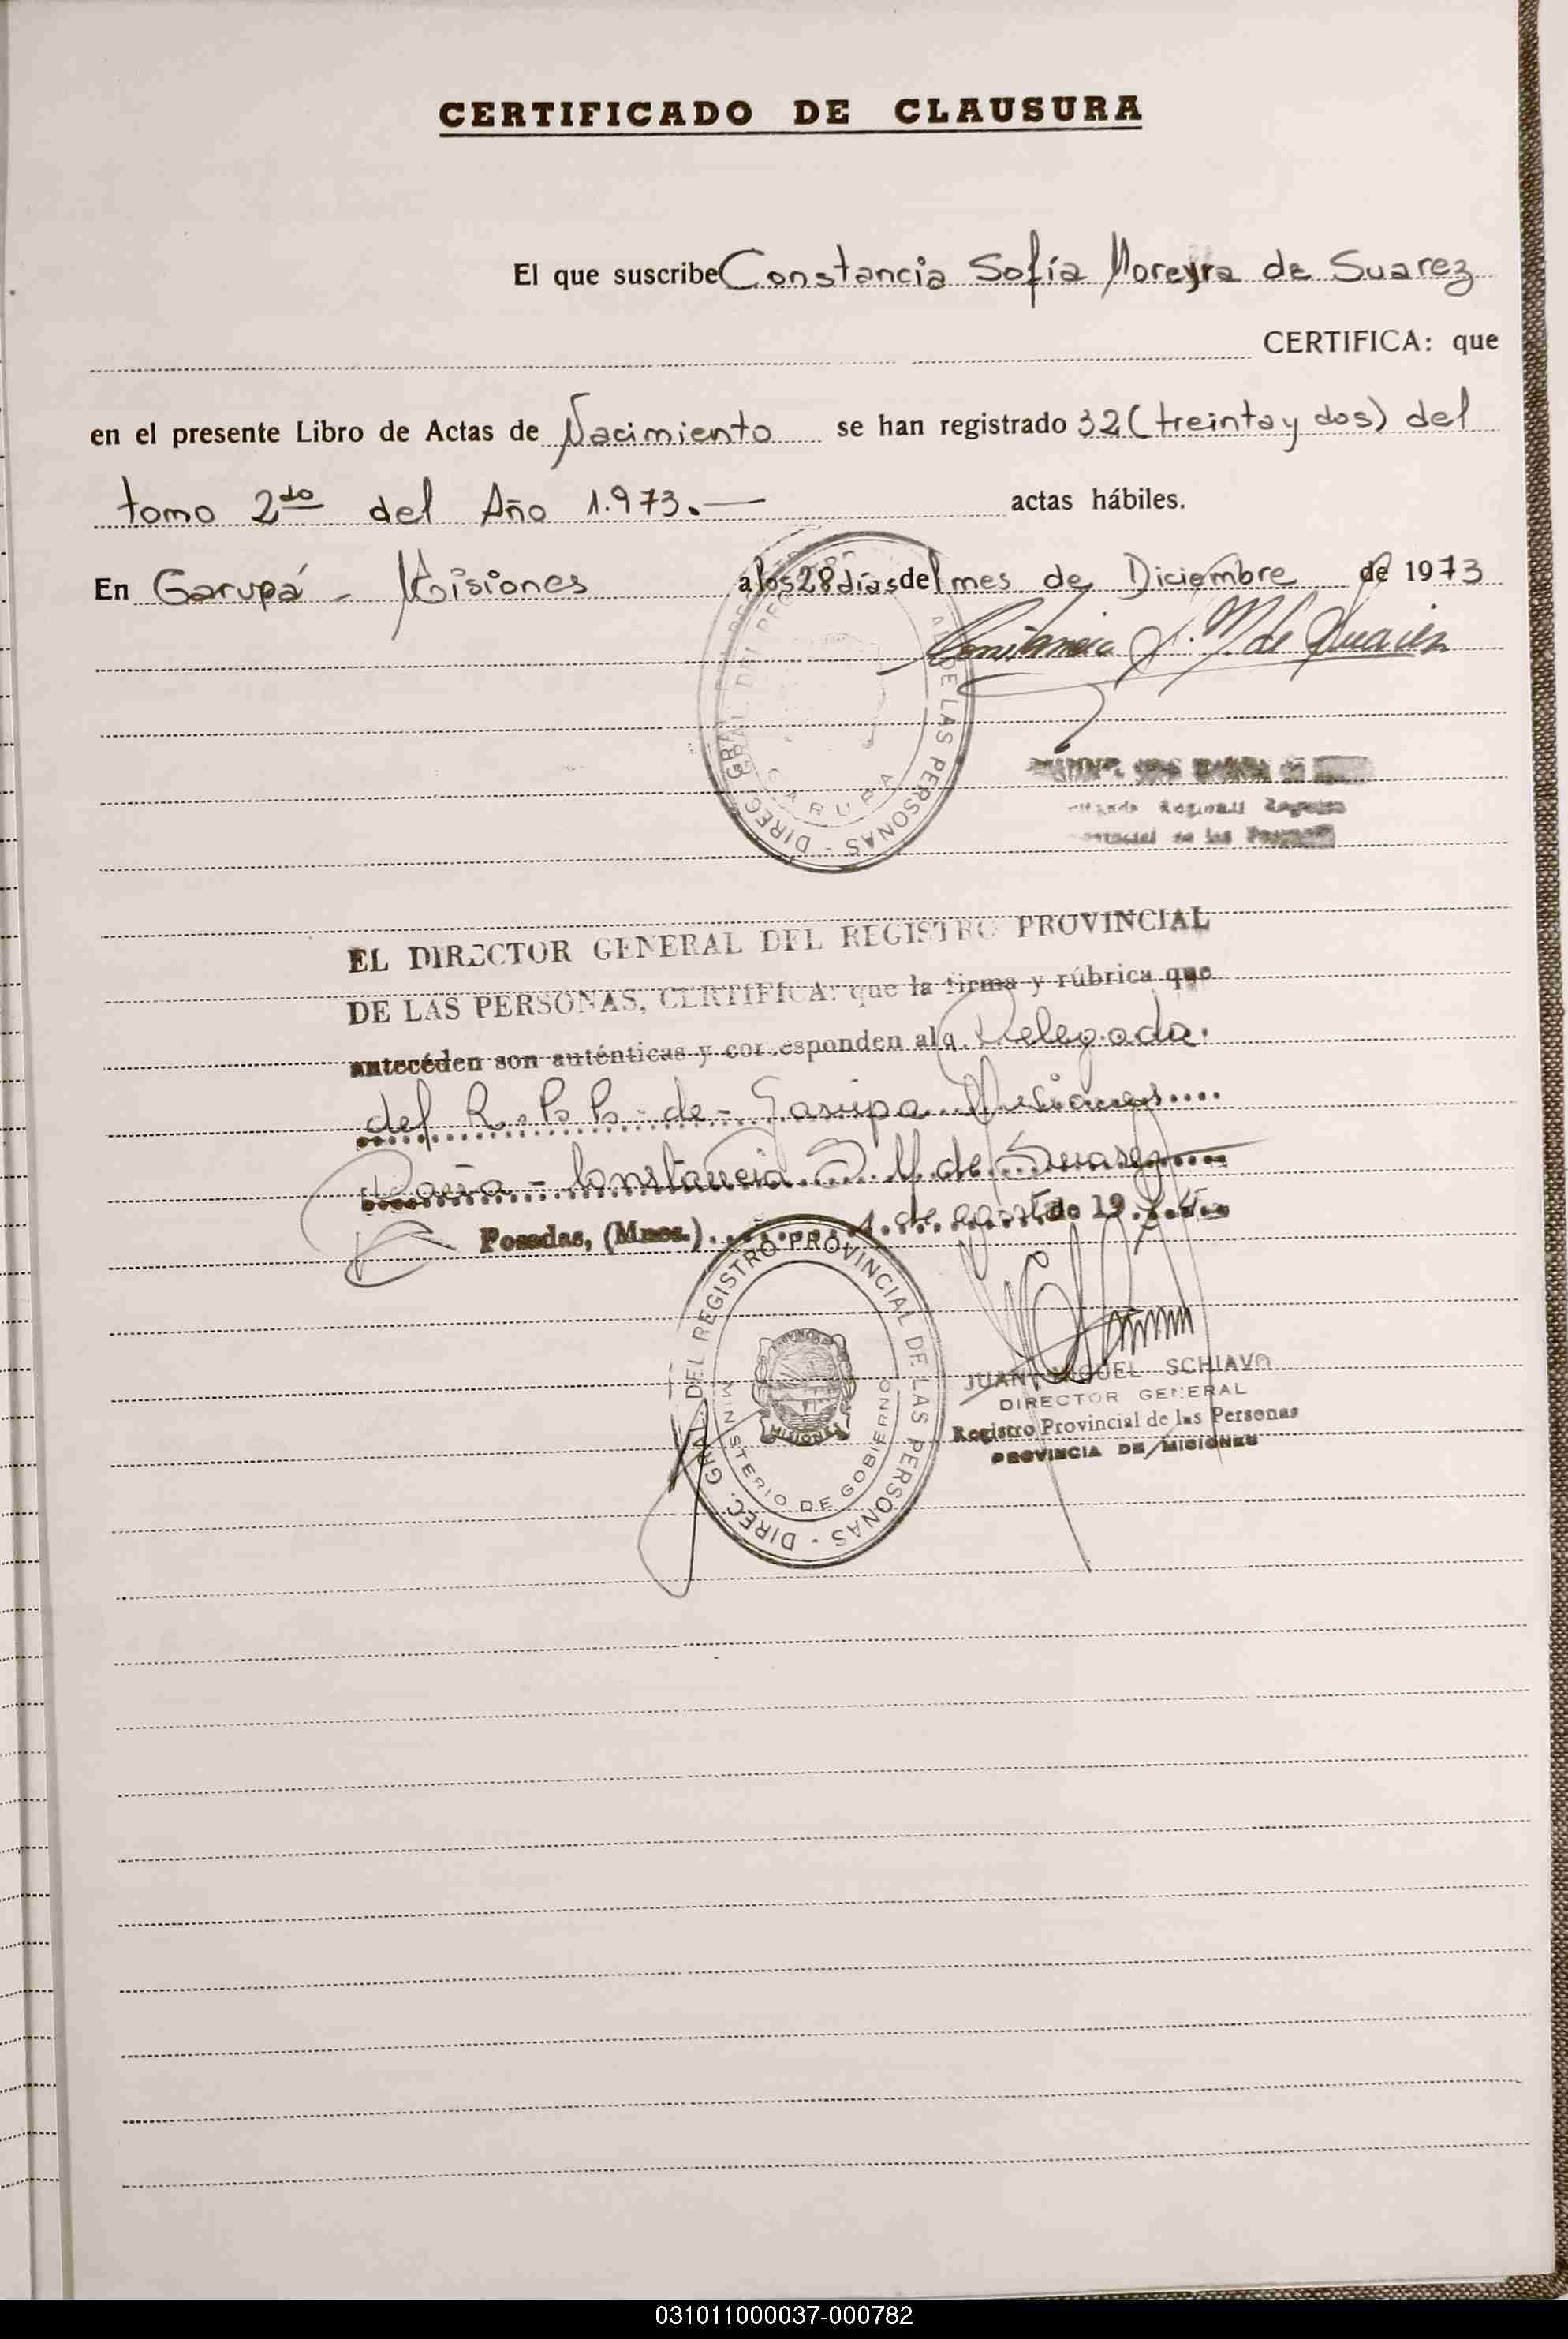 CERTIFICADO DE CLAUSURA
El que suscribe Constancia Sofía Moreyra de Suarez
CERTIFICA: que
en el presente Libro de Actas de Nacimiento se han registrado 32 (treinta y dos) del
tomo 2do del Año 1.973.— actas hábiles.
En Garupá - Misiones a los 28 días del mes de Diciembre de 1973
Constancia S. M. de Suarez
DIREC. GRAL. DEL REGISTRO DE LAS PERSONAS
GARUPA
EL DIRECTOR GENERAL DEL REGISTRO PROVINCIAL
DE LAS PERSONAS, CERTIFICA: que la firma y rúbrica que
anteceden son auténticas y corresponden a la Delegada
del R. P. P. de Garupa Misiones
Constancia S. M. de Suarez
Posadas, (Mnes.) de de 19
DIREC. GRAL. DEL REGISTRO PROVINCIAL DE LAS PERSONAS
MINISTERIO DE GOBIERNO
MISIONES
JUAN MIGUEL SCHIAVO
DIRECTOR GENERAL
Registro Provincial de las Personas
PROVINCIA DE MISIONES
031011000037-000782